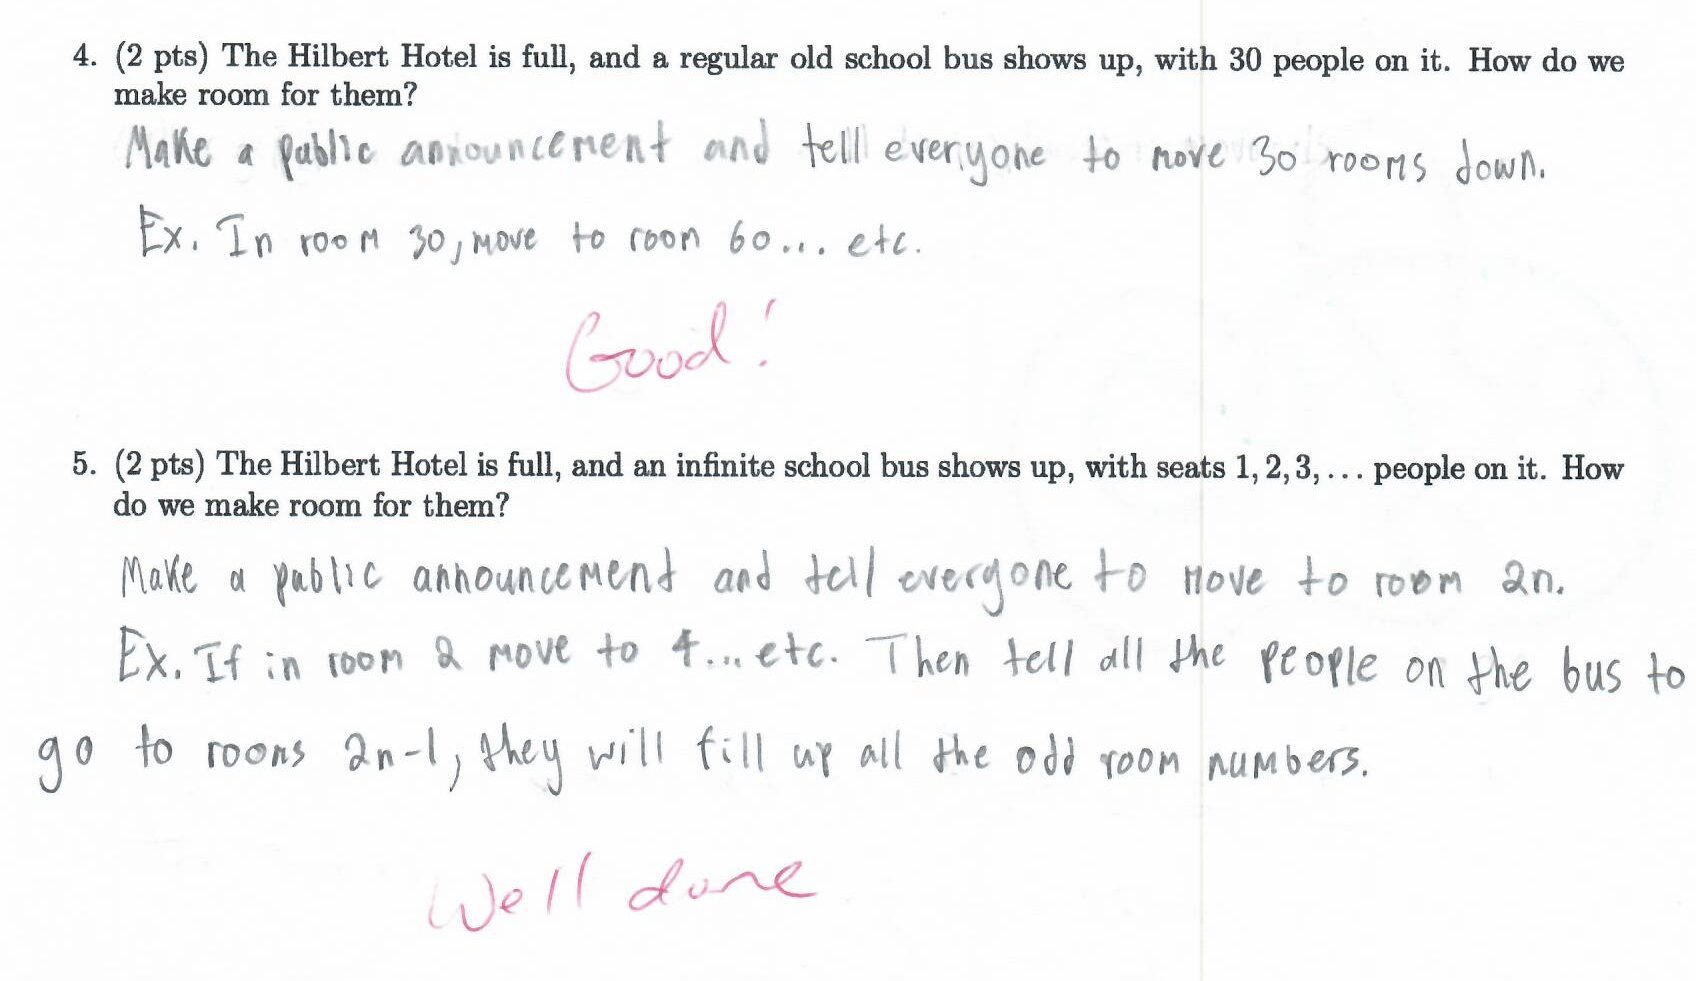 4. (2 pts) The Hilbert Hotel is full, and a regular old school bus shows up, with 30 people on it. How do we
make room for them?
Make a public announcement and tell everyone to move 30 rooms down.
Ex. In room 30, move to room 60... etc.
Good!
5. (2 pts) The Hilbert Hotel is full, and an infinite school bus shows up, with seats 1, 2, 3, ... people on it. How
do we make room for them?
Make a public announcement and tell everyone to move to room 2n.
Ex. If in room 2 move to 4... etc. Then tell all the people on the bus to
go to rooms 2n-1, they will fill up all the odd room numbers.
Well done